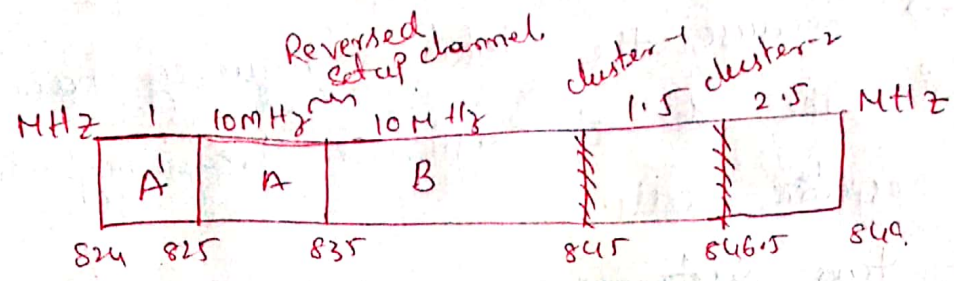 Reversed
setup channel.
cluster-1 cluster-2
MHZ 1 10MHz 10MHz 1.5 2.5 MHZ
A' A B
824 825 835 845 846.5 849.